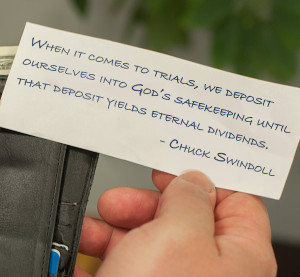 When it comes to trials, we deposit
ourselves into God's safekeeping until
that deposit yields eternal dividends.
- Chuck Swindoll